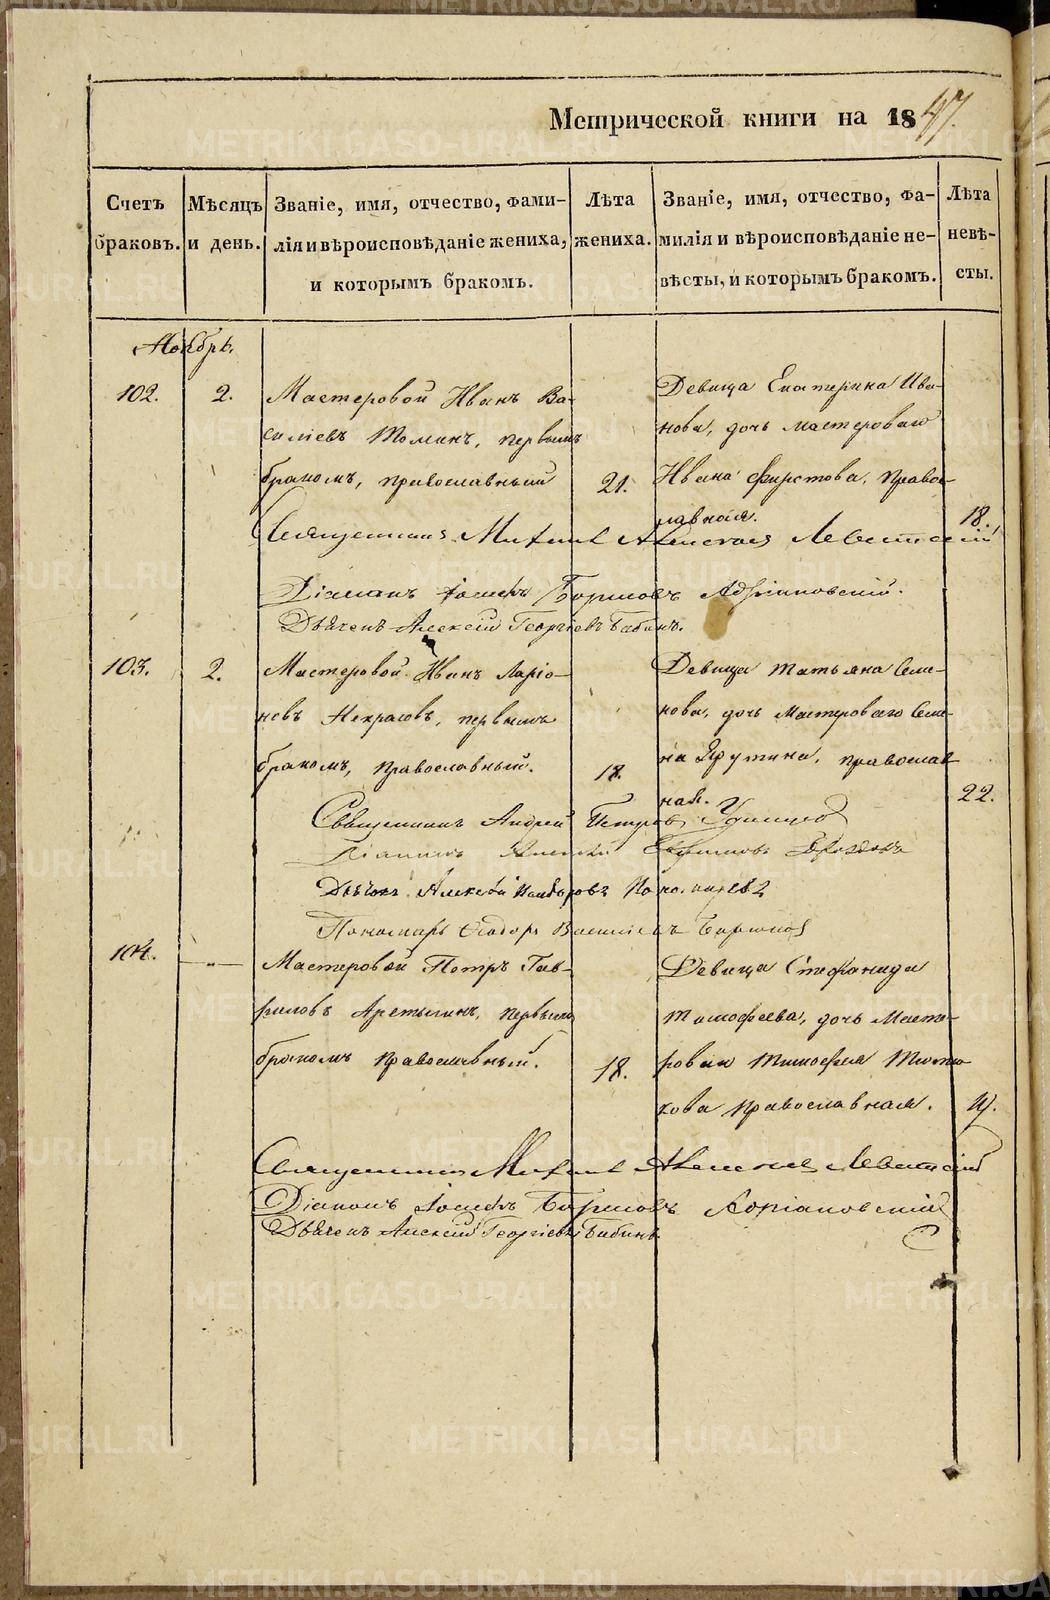 Метрической книги на 1847.
Счетъ браковъ.
Мѣсяцъ и день.
Званіе, имя, отчество, фами-
лія и вѣроисповѣданіе жениха,
и которымъ бракомъ.
Лѣта жениха.
Званіе, имя, отчество, фа-
милія и вѣроисповѣданіе не-
вѣсты, и которымъ бракомъ.
Лѣта невѣ-
сты.
Ноябрь.
102.
2.
Мастеровой Иванъ Ва-
силіевъ Томинъ, первымъ
бракомъ, православный
21.
Девица Екатерина Ива-
нова, дочь мастероваго
Ивана Фирстова, право-
славная.
18.
Священникъ Михаилъ Алексіевъ Левитскій
Діаконъ Іосифъ Борисовъ Адріановскій.
Дьячекъ Алексій Георгіевъ Бабинъ.
103.
2.
Мастеровой Иванъ Ларіо-
новъ Некрасовъ, первымъ
бракомъ, православный.
18.
Девица Татьяна Семе-
нова, дочь Мастероваго Семе-
на Ярутина, православ-
ная.
22.
Священникъ Андрей Петровъ Удинцов
Діаконъ Алексій
Дьячокъ Алексѣй Пономаревъ
Пономарь Ѳеодоръ Василіевъ
104.
— „ —
Мастеровой Петръ Гав-
риловъ Аретыгинъ, первымъ
бракомъ православный.
18.
Девица Стефанида
Тимофеева, дочь Масте-
роваго Тимофея
православная.
Священникъ Михаилъ Алексіевъ Левитскій
Діаконъ Іосифъ Борисовъ Адріановскій
Дьячекъ Алексій Георгіевъ Бабинъ
METRIKI.GASO-URAL.RU